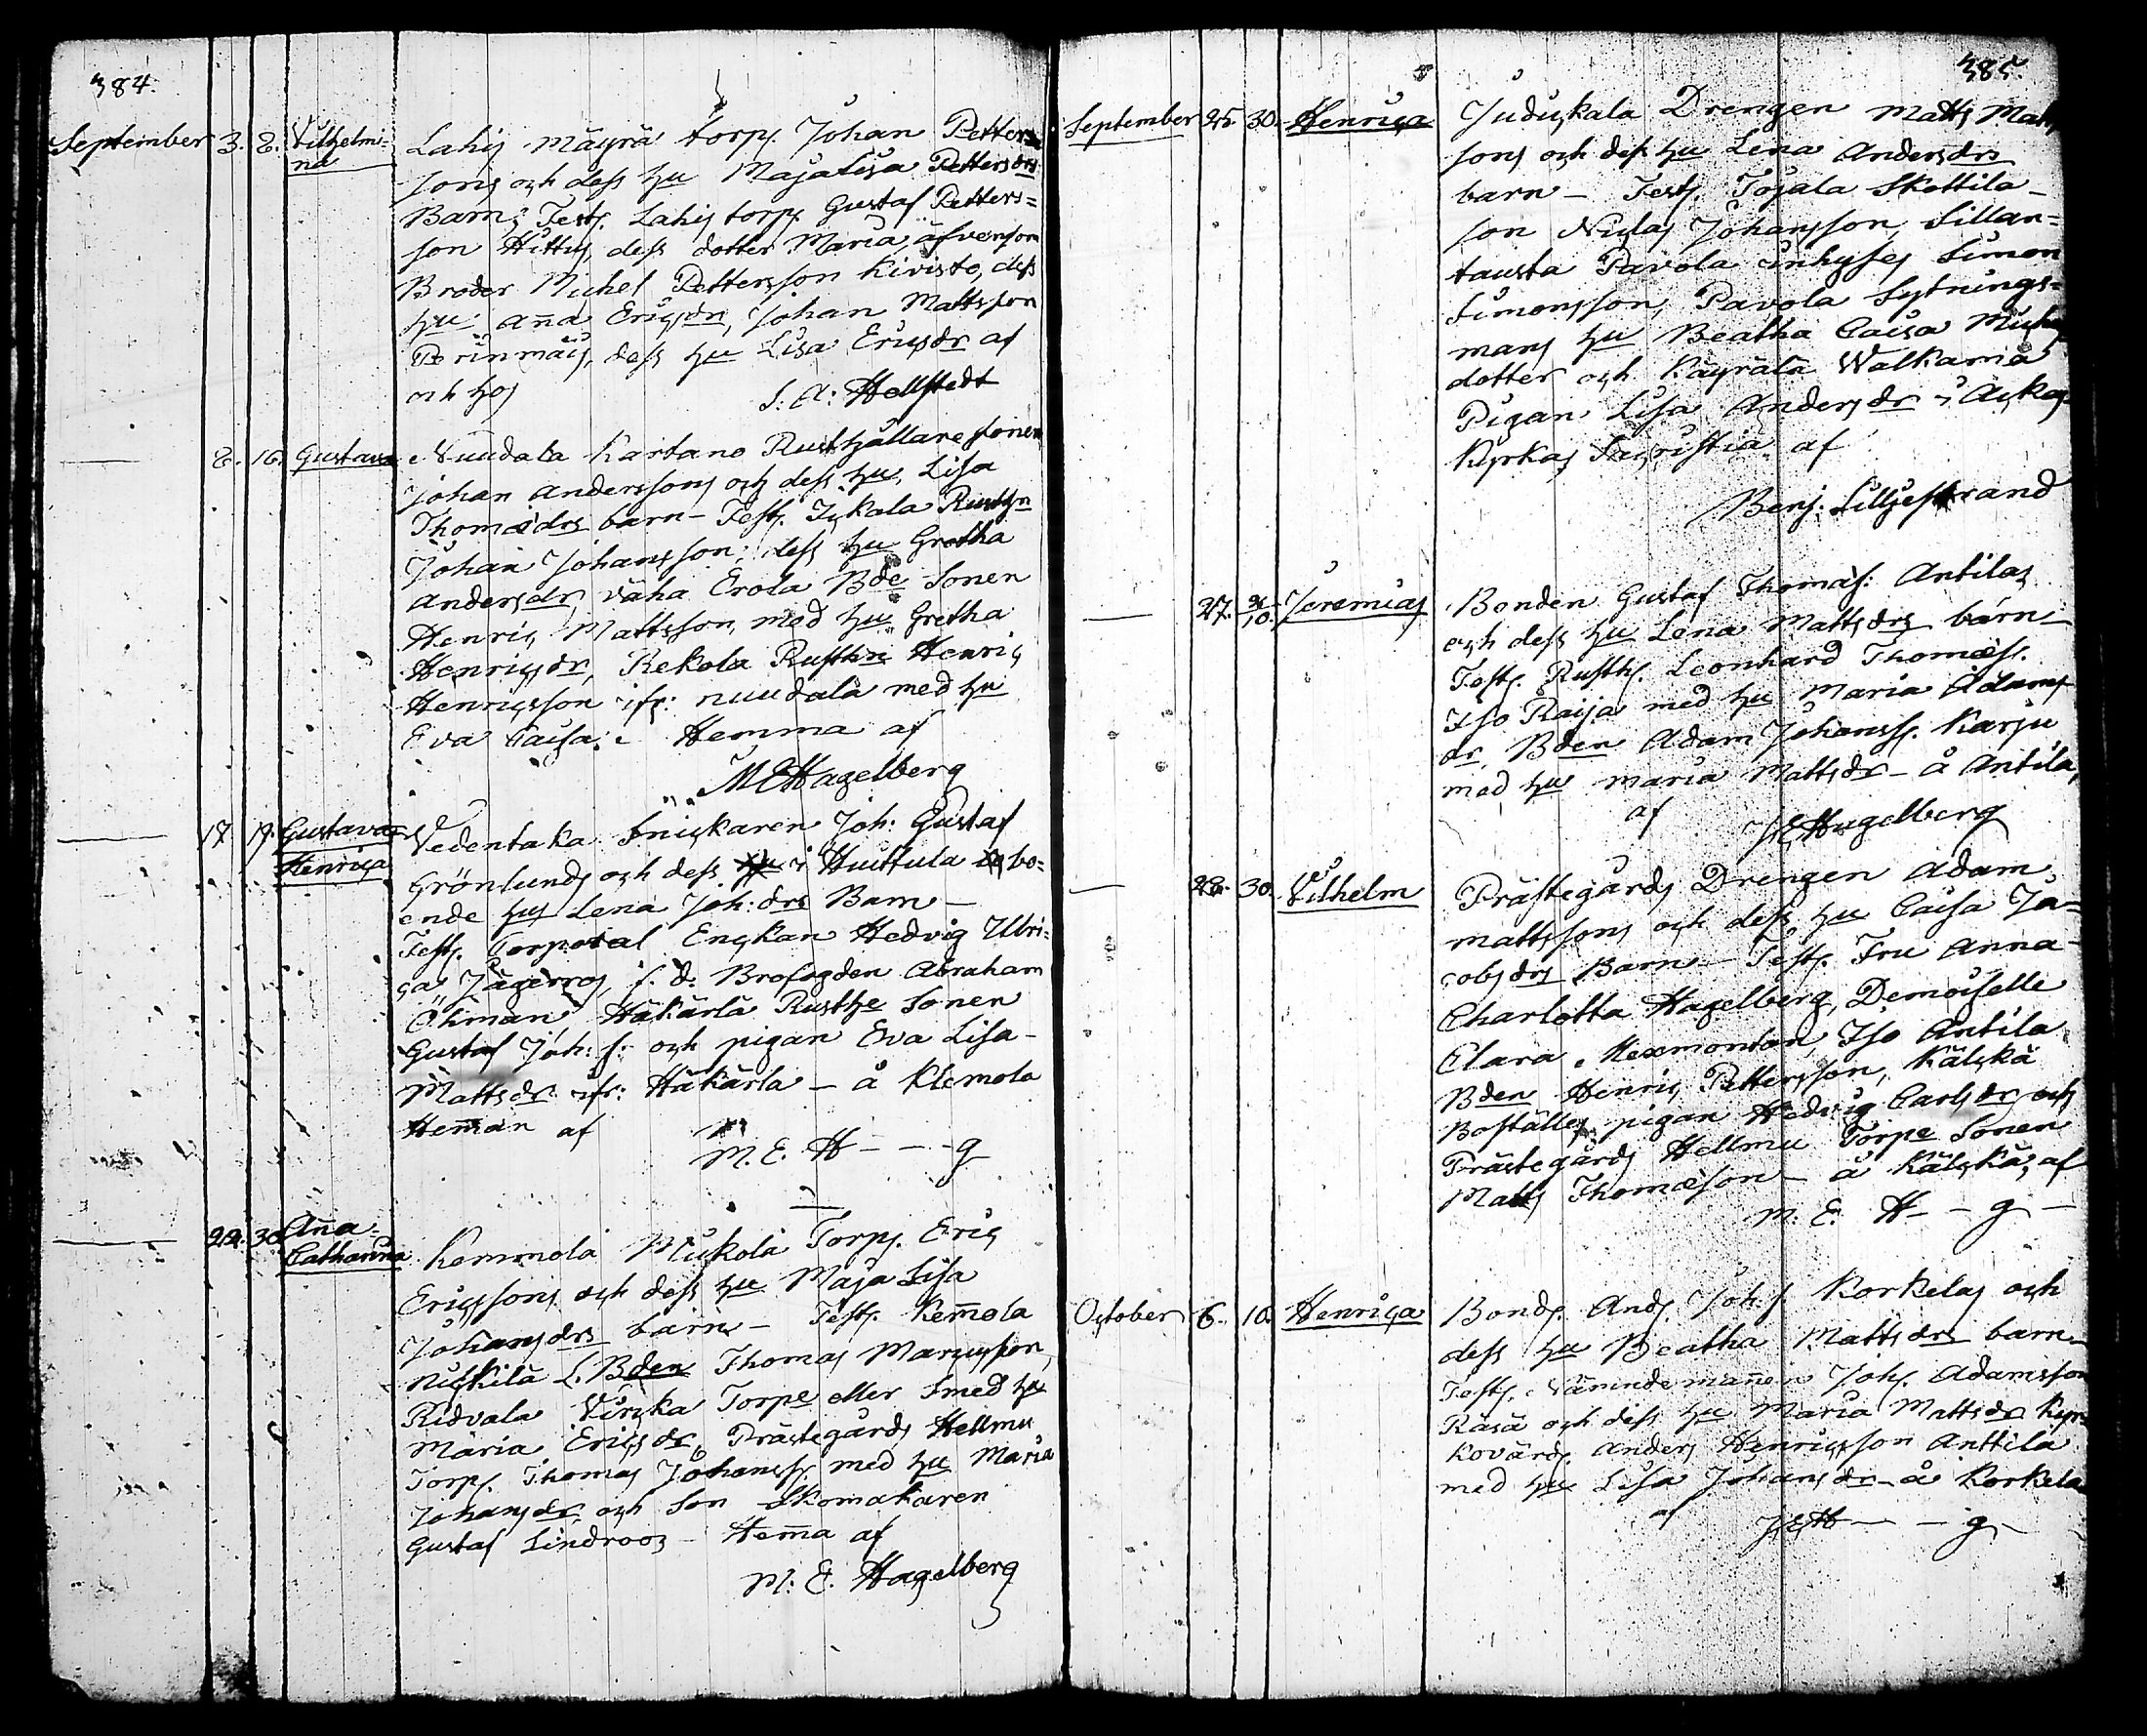 384.
September 3. 8. Vilhelmi-
na
Lahis Mäyrä torp. Johan Petters
sons och dess hu Majalisa Pettersdrs
Barn; Test. Lahis torp. Gustaf Petters=
son Hittus, dess dotter Maria, äfvensom
Broder Michel Pettersson Kivisto, dess
hu Anna Ericsdr, Johan Mattsson
dess hu Lisa Ericsdr af
och hos
S: A: Hellstedt
8. 16. Gustava
Nuudala Kartano Rusthållare sonen
Johan Anderssons och dess hu, Lisa
Thomædrs barn – Test. Ickala Rusthn
Johan Johansson, dess hu Gretha
Andersdr, väha Erola Bde Sonen
Henric Mattsson, med hu Gretha
Henricsdr, Rekola Rusthn Henric
Henricsson ifr: nuudala med hu
Eva Caisa. Hemma af
M E Hagelberg
17. 19. Gustava
Henrica
Vedentaka Snickaren Joh: Gustaf
Grönlunds och dess i Huittula bo=
ende hus Lena Joh: drs Barn –
Test. Corporal Enckan Hedvig Ulri=
ca Jägerros, f. d. Brofogden Abraham
Öhman Häkärlä Rusthe Sonen
Gustaf Joh: s: och pigan Eva Lisa
Mattsdr ifr: Häkärla – å Klemola
Heman af
M. E. H - - - g
22. 30. Aña
Catharina
Kemmola Mickola Torp. Eric
Ericssons och dess hu Maja Lisa
Johansdrs barn – Test. Kem̄ola
nickilä L. Bden Thomas Marcusson,
Ridvala Torpe eller Smed hu
Maria Ericsdr, Prästegårds Hellmu
Torp. Thomas Johanss. med hu Maria
Johansdr, och Son Skomakaren
Gustaf Lindroos – Hem̄a af
M: E. Hagelberg
385.
September 25. 30. Henrica
Juduskala Drengen Matts Matts
sons och dess hu Lena Andersdrs
barn – Test. Tojala Skottila
son Niclas Johansson, Sillan=
tausta Pavola inhyses Simon
Simonsson, Pavola Sytnings=
mans hu Beatha Caisa Michels
dotter och Käyrälä Walkama
Pigan Lisa Andersdr – i Ackas
Kyrkas Sacristia af
Benj: Lilljestrand
27. 2/10. Jeremias
Bonden Gustaf Thomæs: Antilas
och dess hu Lena Mattsdrs barn –
Test. Rusth. Leonhard Thomæs.
Iso Raija med hu Maria Adams
dr, Bden Adam Johanss. Karju
med hu Maria Mattsdr – å Antila,
af
M E Hagelberg
28. 30. Vilhelm
Prästegårds Drengen Adam
Mattssons och dess hu Caisa Ja=
cobsdrs Barn – Test. Fru Anna
Charlotta Hagelberg, Demoiselle
Clara Mexmontan, Iso Antila
Bden Henric Pettersson, Kälckä
Boställes pigan Hedvig Carlsdr och
Prästegårds Hellmu Torpe Sonen
Matts Thomæson – å Kälckä, af
M. E. H - - g -
October 6. 10. Henrica
Bond. And. Joh. s. Korkelas och
dess hu Beatha Mattsdrs barn –
Test. Nämndemañen Joh. Adamsson
Räsä och dess hu Maria Mattsdr Kyr=
kovärd. Anders Henricsson Anttila
med hu Lisa Johansdr – å Korkela
af
M E H - - g -